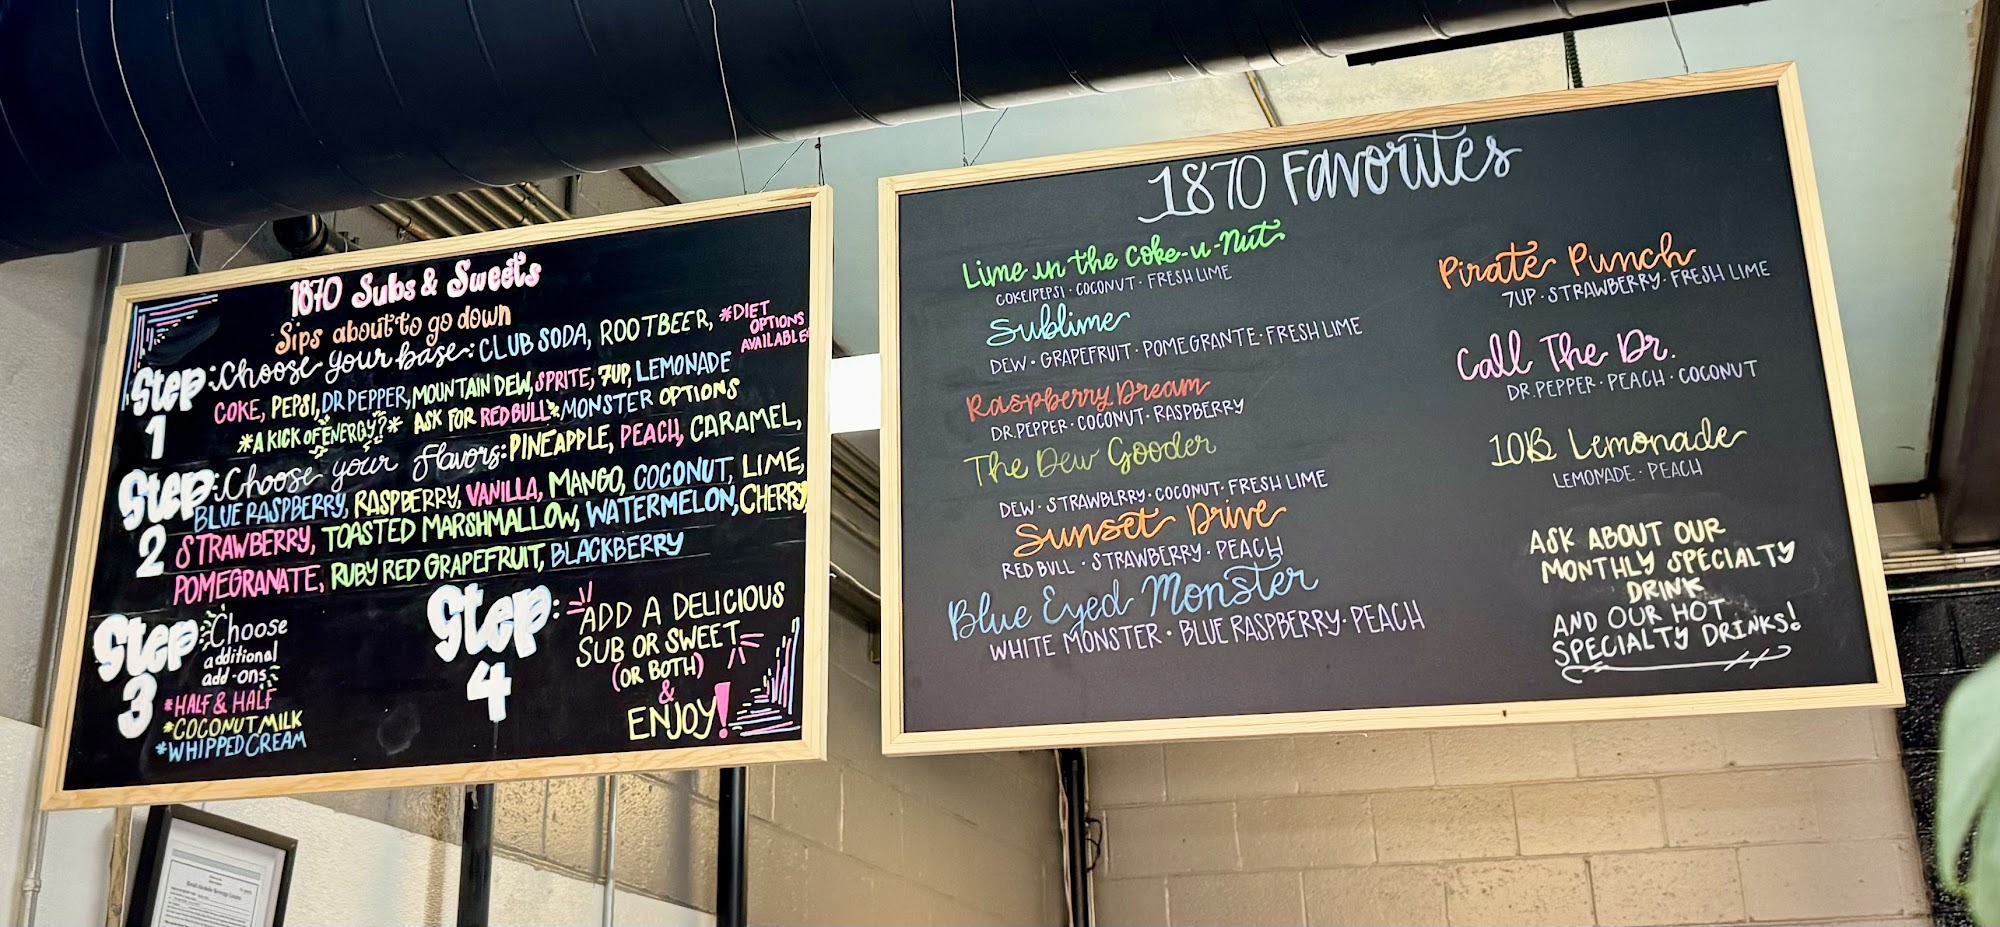 1870 Subs & Sweets
Sips about to go down
Step 1
:Choose your base: CLUB SODA, ROOTBEER,
*DIET
OPTIONS
AVAILABLE
COKE, PEPSI, DR PEPPER, MOUNTAIN DEW, SPRITE, 7UP, LEMONADE
*A KICK OF ENERGY?* ASK FOR REDBULL*MONSTER OPTIONS
Step 2
:Choose your flavors: PINEAPPLE, PEACH, CARAMEL,
BLUE RASPBERRY, RASPBERRY, VANILLA, MANGO, COCONUT, LIME,
STRAWBERRY, TOASTED MARSHMALLOW, WATERMELON, CHERRY,
POMEGRANATE, RUBY RED GRAPEFRUIT, BLACKBERRY
Step 3
:Choose
additional
add-ons
*HALF & HALF
*COCONUT MILK
*WHIPPED CREAM
Step: 4
ADD A DELICIOUS
SUB OR SWEET
(OR BOTH)
&
ENJOY!
1870 Favorites
Lime in the Coke-u-Nut
COKE/PEPSI · COCONUT · FRESH LIME
Sublime
DEW · GRAPEFRUIT · POMEGRANTE · FRESH LIME
Raspberry Dream
DR. PEPPER · COCONUT · RASPBERRY
The Dew Gooder
DEW · STRAWBLRRY · COCONUT · FRESH LIME
Sunset Drive
RED BULL · STRAWBERRY · PEACH
Blue Eyed Monster
WHITE MONSTER · BLUE RASPBERRY · PEACH
Pirate Punch
7UP · STRAWBERRY · FRESH LIME
Call The Dr.
DR. PEPPER · PEACH · COCONUT
10B Lemonade
LEMONADE · PEACH
ASK ABOUT OUR
MONTHLY SPECIALTY
DRINK
AND OUR HOT
SPECIALTY DRINKS!